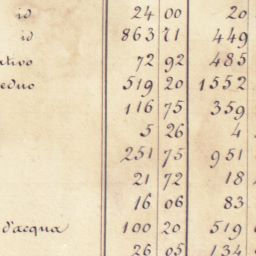 id 24 00 20
id 863 71 449
72 92 485
519 20 1552
116 75 359
5 26 4
251 75 951
21 72 18
16 06 83
d'acqua 100 20 519
26 05 134